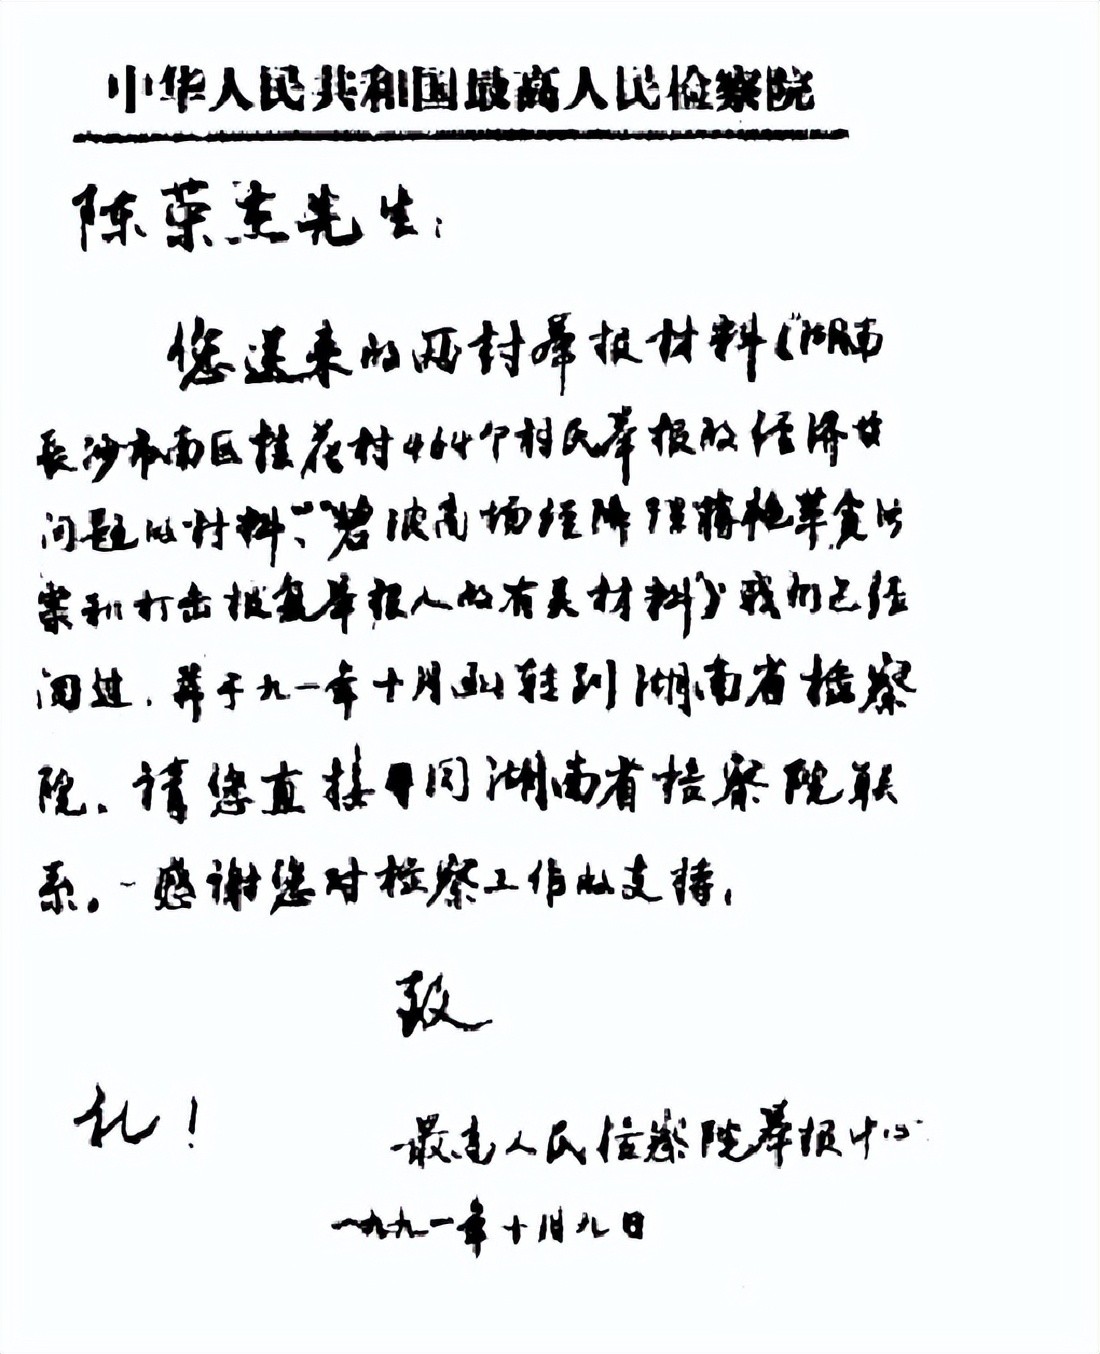 中华人民共和国最高人民检察院
陈荣杰先生：
您送来的两封举报材料（“湖南
长沙市南区桂花村464个村民举报的经济
问题的材料、”“碧波商场经 蒋艳萍贪污
案和打击报复举报人的有关材料》我们已经
阅过，并于九一年十月函转到湖南省检察
院。请您直接同湖南省检察院联
系。感谢您对检察工作的支持，
致
礼！
最高人民检察院举报中心
一九九一年十月九日